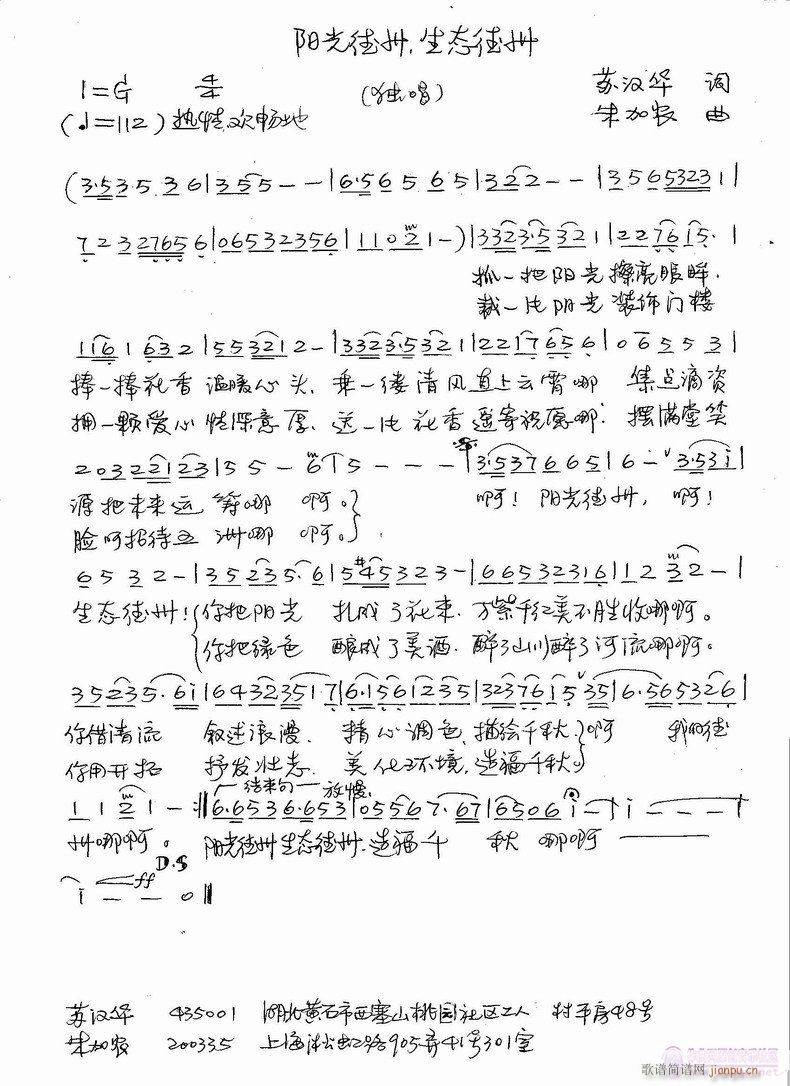 阳光德州,生态德州
1=G 4/4 (独唱) 苏汉华 词
(♩=112) 热情欢畅地 朱加农 曲
(3·535 36|355--|6·56 5 65|322--|356 53231|
7 2 3 2765 6|065323 56|1102 1-)|3323·5321|22761 5·|
抓一把阳光擦亮眼眸,
裁一片阳光装饰门楼
116 1 632|553212-|3323·5321|2217656|06553|
捧一捧花香温暖心头,乘一缕清风直上云霄哪 集点滴资
拥一颗爱心情深意厚,送一片花香遥寄祝愿哪.摆满堂笑
20322123|55-6|5---|3·537665|6-3·53i|
源把未来运筹哪 啊。 啊!阳光德州, 啊!
脸呵招待五洲哪 啊。
6532-|35235·6|5#45323-|66532316|1232-|
生态德州!你把阳光 扎成了花束.万紫千红美不胜收哪啊。
你把绿色 酿成了美酒.醉了山川醉了河流哪啊。
35235·6i|643235 1·7|6·156 1235|323761 5 35|6·565326|
你借清流 叙述浪漫、精心调色,描绘千秋.啊 我的德
你用开拓 抒发壮志.美化环境,造福千秋。
结束句 放慢
112 1-:‖6·6536·653|05567·67|6506i-|i---|
州哪啊。 阳光德州生态德州.造福千 秋 哪啊
D.S ff
i--0‖
苏汉华 435001 湖北黄石市西塞山桃园社区工人村平房48号
朱加农 200335 上海淞虹路905弄41号301室
歌谱简谱网 jianpu.cn